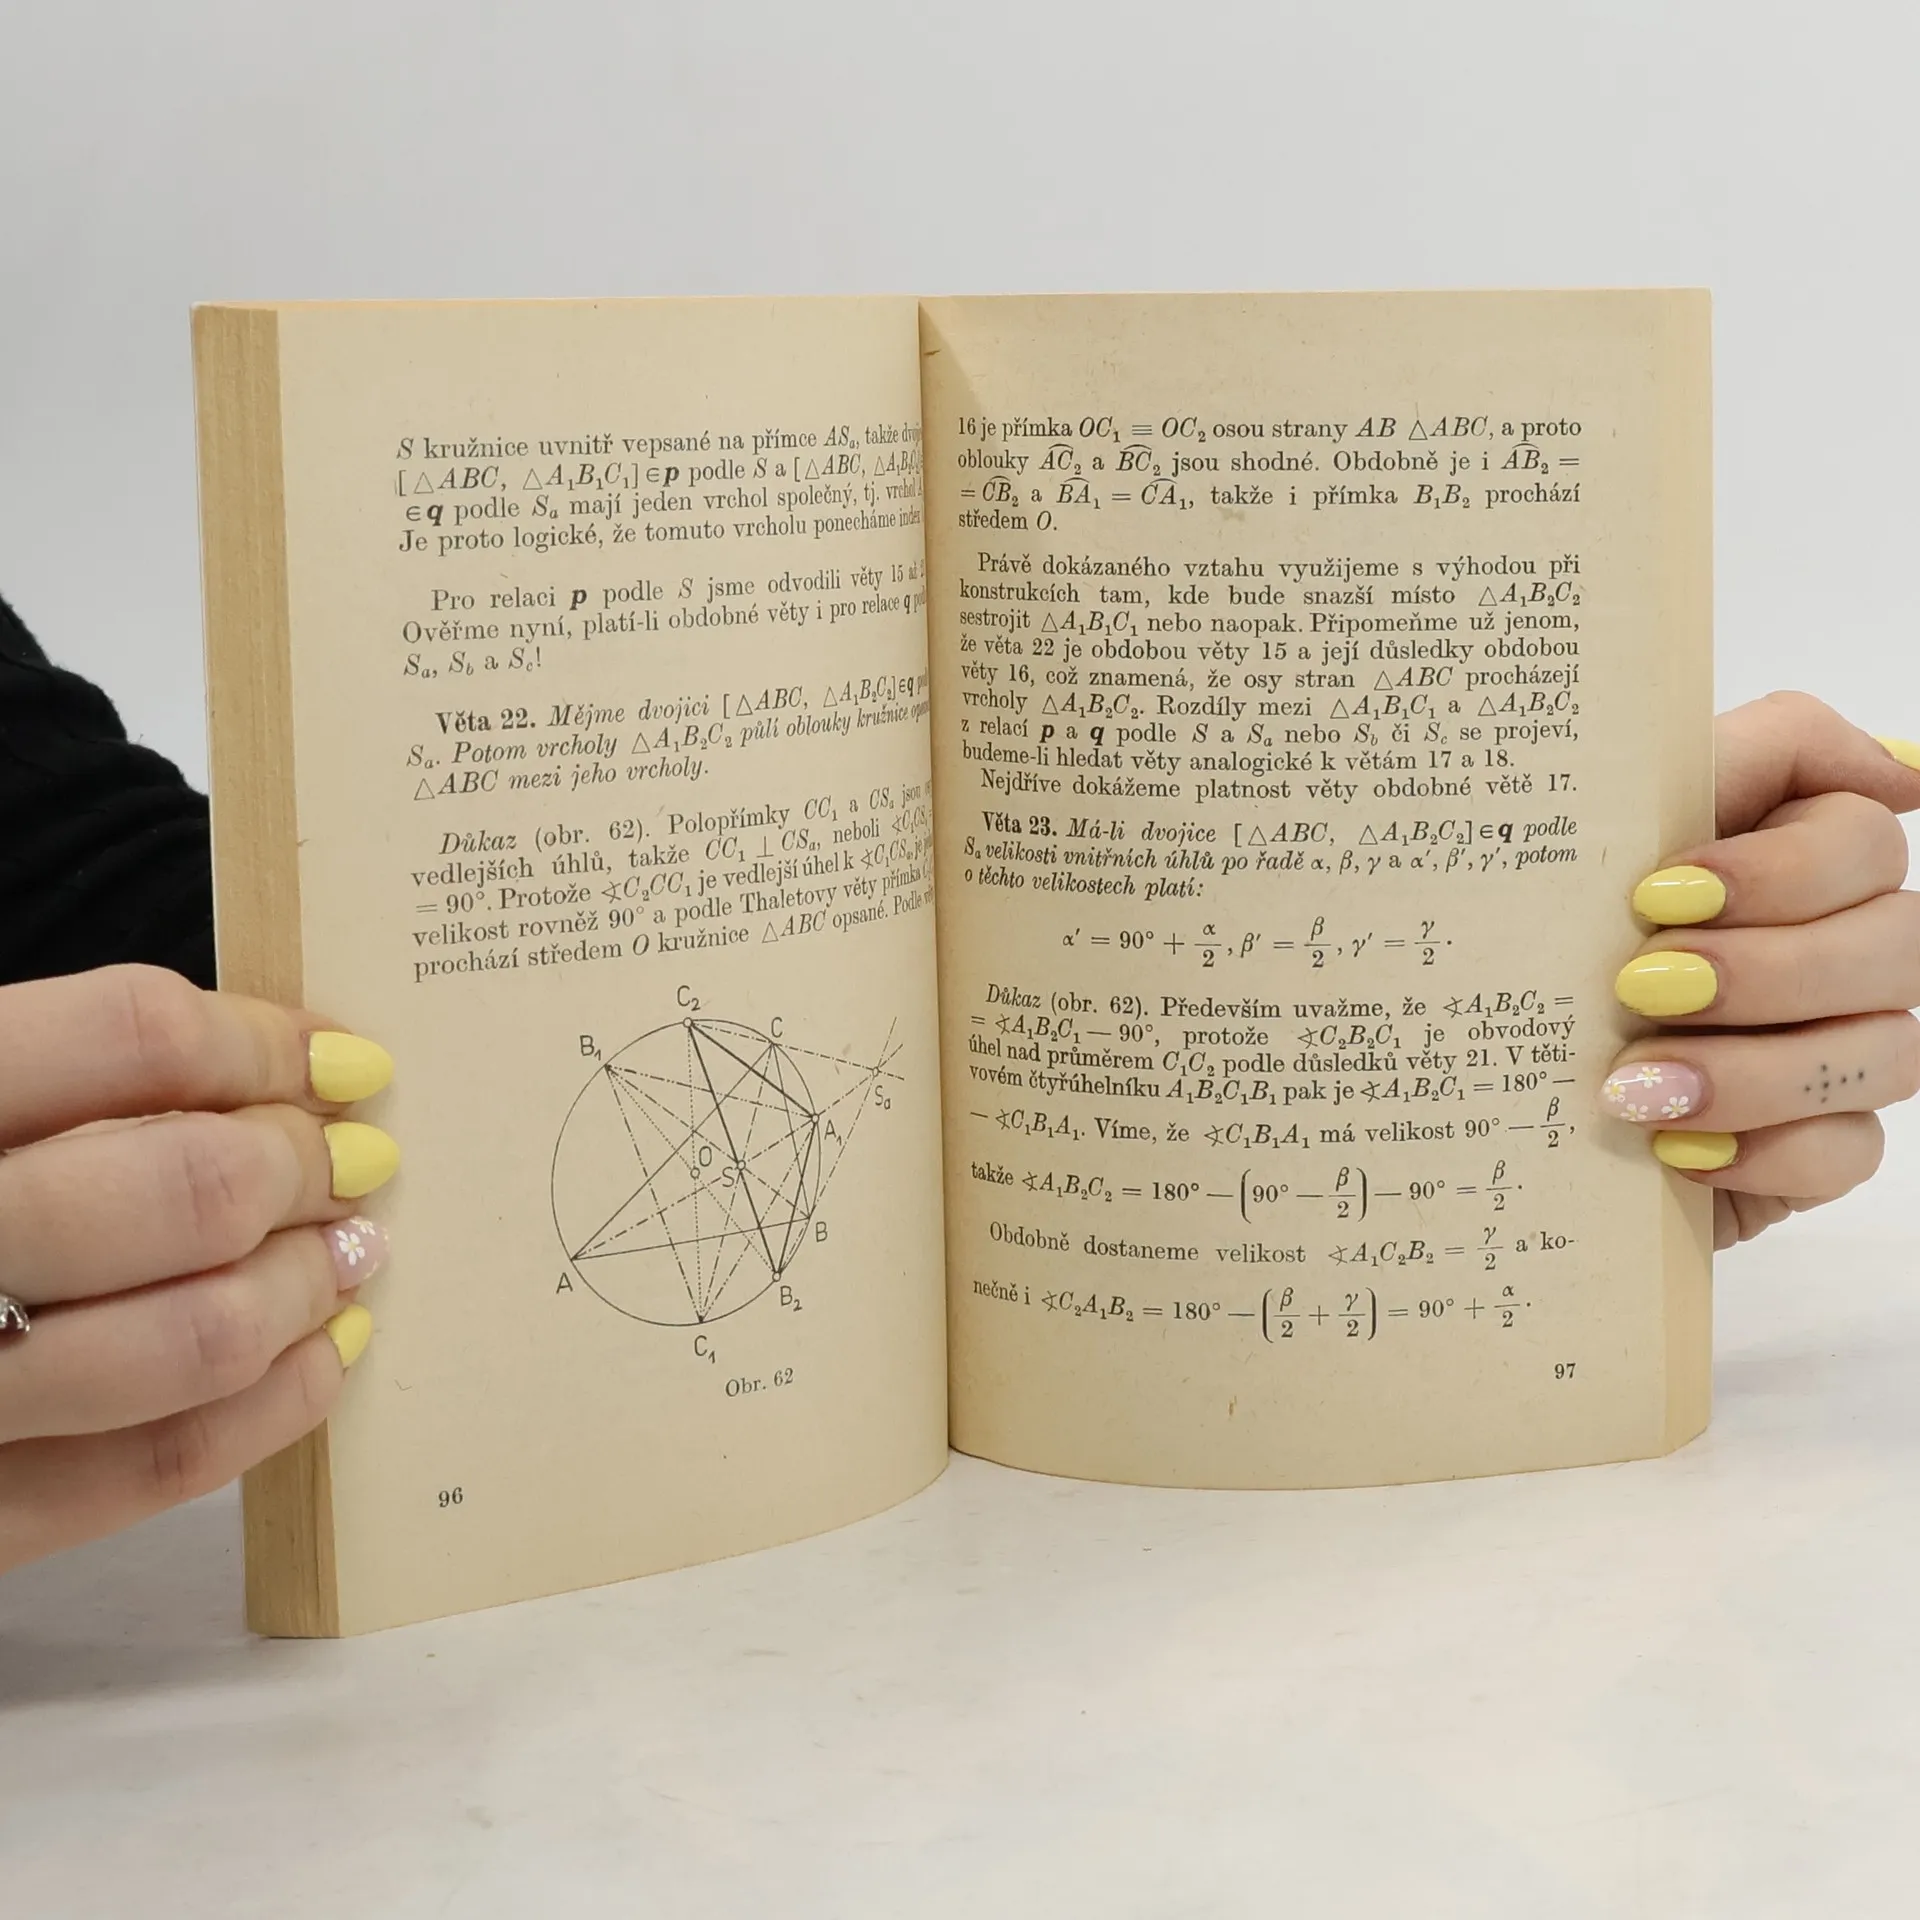 S kružnice uvnitř vepsané na přímce ASₐ, takže
[△ABC, △A₁B₁C₁] ∈ p podle S a [△ABC, △A₁B₂C₂]
∈ q podle Sₐ mají jeden vrchol společný, tj. vrchol
Je proto logické, že tomuto vrcholu ponecháme index
Pro relaci p podle S jsme odvodili věty 15 až
Ověřme nyní, platí-li obdobné věty i pro relace q
Sₐ, S_b a S_c!
Věta 22. Mějme dvojici [△ABC, △A₁B₂C₂] ∈ q
Sₐ. Potom vrcholy △A₁B₂C₂ půlí oblouky kružnice
△ABC mezi jeho vrcholy.
Důkaz (obr. 62). Polopřímky CC₁ a CSₐ jsou
vedlejších úhlů, takže CC₁ ⊥ CSₐ, neboli ∢C₁CSₐ =
= 90°. Protože ∢C₂CC₁ je vedlejší úhel k ∢C₁CSₐ, je
velikost rovněž 90° a podle Thaletovy věty přímka
prochází středem O kružnice △ABC opsané. Podle
C₂
C
B₁
Sₐ
A₁
O
S
B
A
B₂
C₁
Obr. 62
96
16 je přímka OC₁ ≡ OC₂ osou strany AB △ABC, a proto
oblouky A͡C₂ a B͡C₂ jsou shodné. Obdobně je i A͡B₂ =
= C͡B₂ a B͡A₁ = C͡A₁, takže i přímka B₁B₂ prochází
středem O.
Právě dokázaného vztahu využijeme s výhodou při
konstrukcích tam, kde bude snazší místo △A₁B₂C₂
sestrojit △A₁B₁C₁ nebo naopak. Připomeňme už jenom,
že věta 22 je obdobou věty 15 a její důsledky obdobou
věty 16, což znamená, že osy stran △ABC procházejí
vrcholy △A₁B₂C₂. Rozdíly mezi △A₁B₁C₁ a △A₁B₂C₂
z relací p a q podle S a Sₐ nebo S_b či S_c se projeví,
budeme-li hledat věty analogické k větám 17 a 18.
Nejdříve dokážeme platnost věty obdobné větě 17.
Věta 23. Má-li dvojice [△ABC, △A₁B₂C₂] ∈ q podle
Sₐ velikosti vnitřních úhlů po řadě α, β, γ a α′, β′, γ′, potom
o těchto velikostech platí:
α′ = 90° + α/2, β′ = β/2, γ′ = γ/2.
Důkaz (obr. 62). Především uvažme, že ∢A₁B₂C₂ =
= ∢A₁B₂C₁ — 90°, protože ∢C₂B₂C₁ je obvodový
úhel nad průměrem C₁C₂ podle důsledků věty 21. V těti-
vovém čtyřúhelníku A₁B₂C₁B₁ pak je ∢A₁B₂C₁ = 180° —
— ∢C₁B₁A₁. Víme, že ∢C₁B₁A₁ má velikost 90° — β/2,
takže ∢A₁B₂C₂ = 180° — (90° — β/2) — 90° = β/2.
Obdobně dostaneme velikost ∢A₁C₂B₂ = γ/2 a ko-
nečně i ∢C₂A₁B₂ = 180° — (β/2 + γ/2) = 90° + α/2.
97